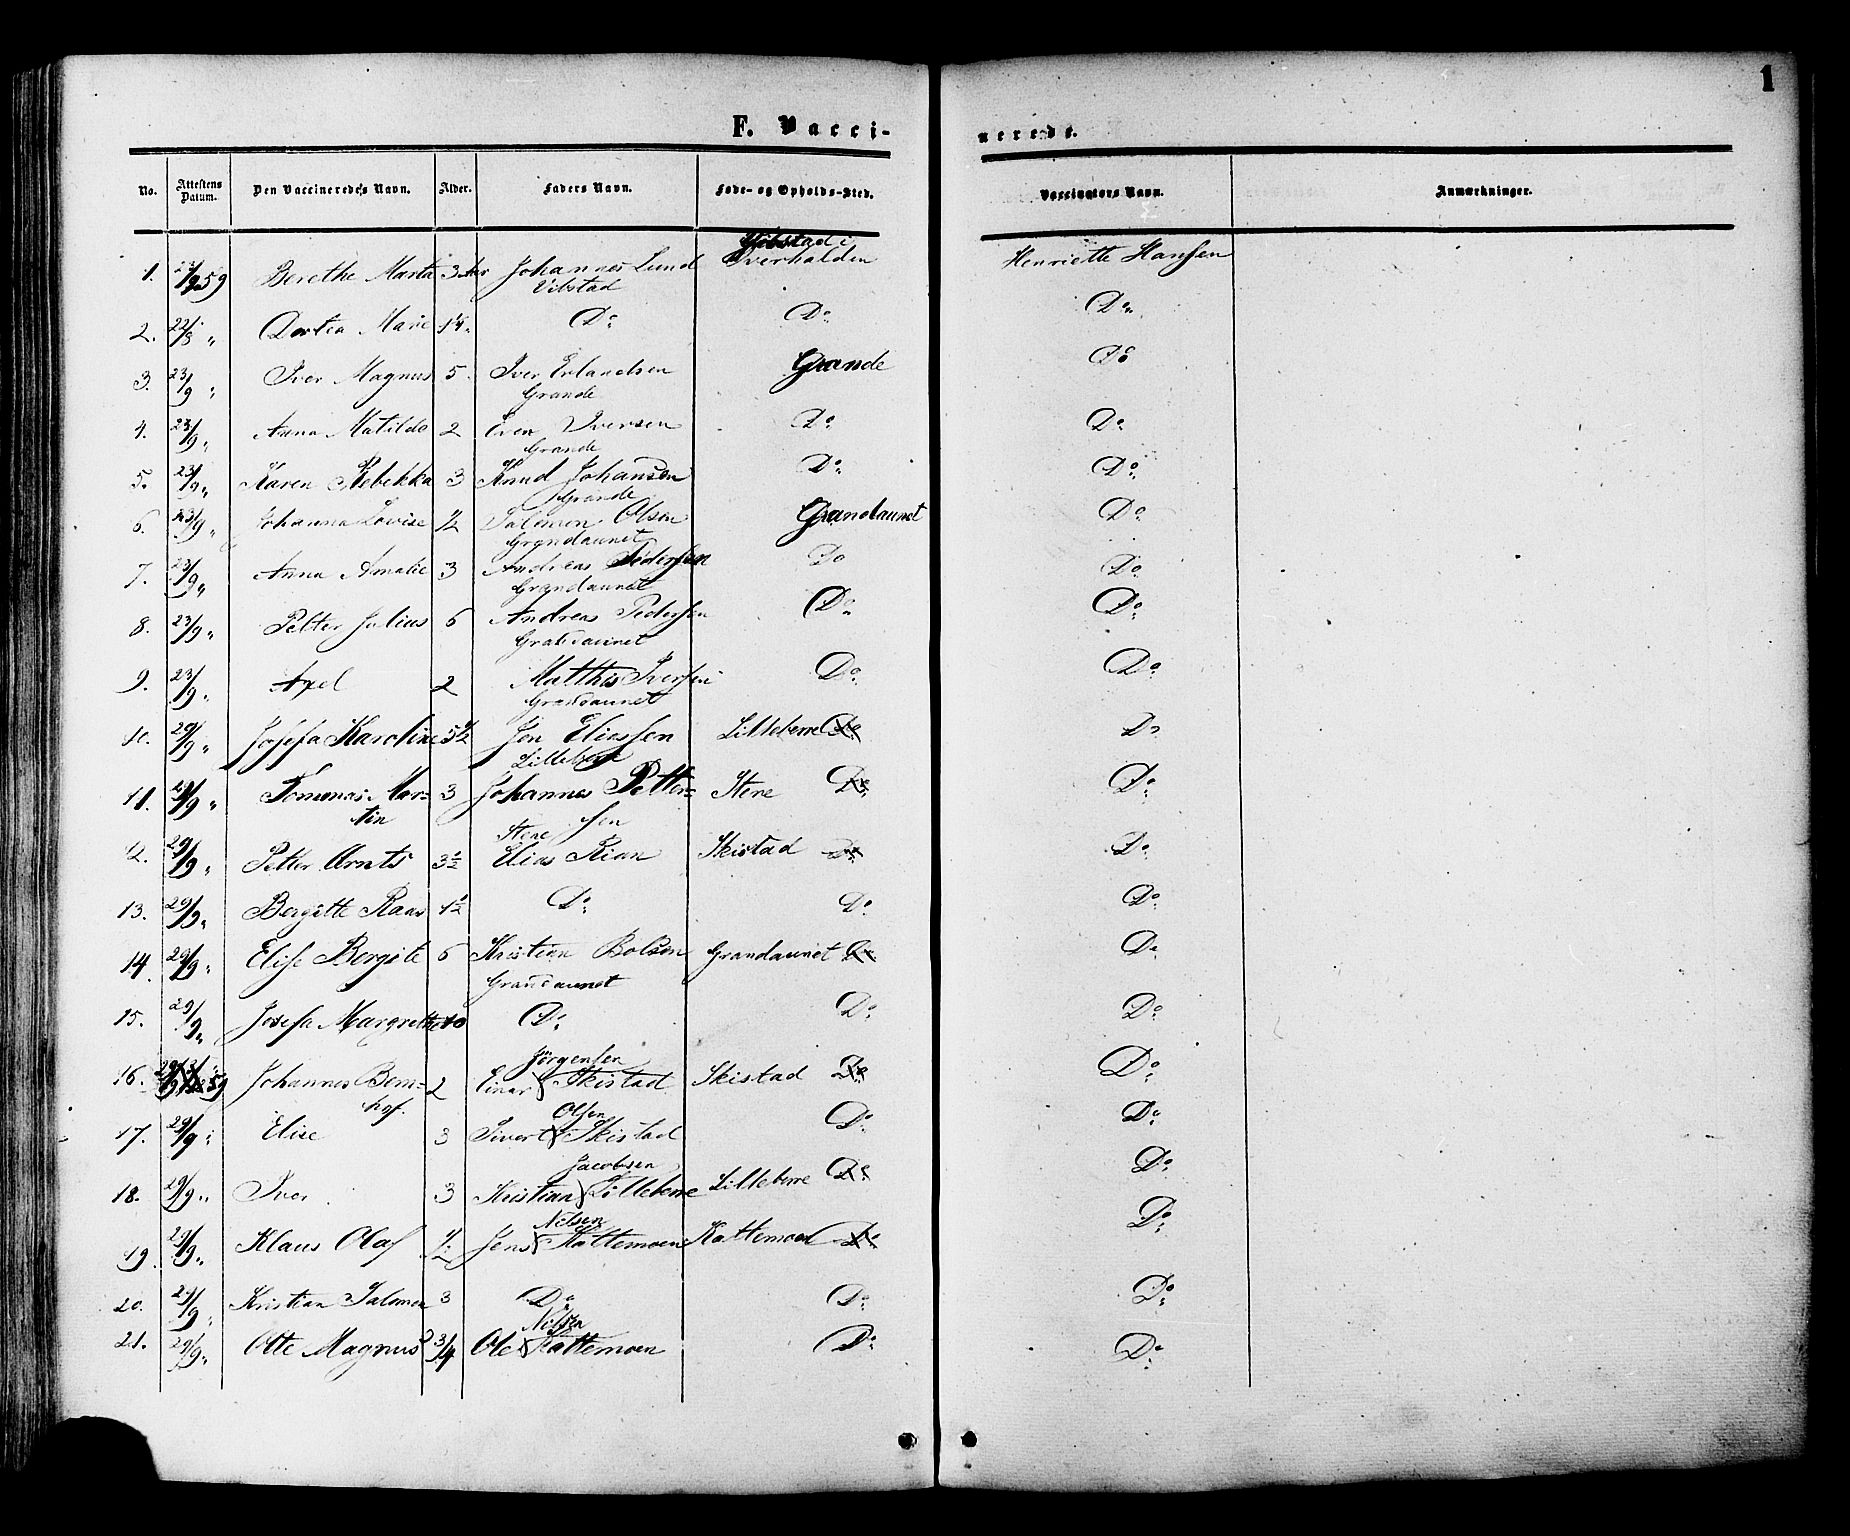 1
F. Vacci-
nerede.
No. Attestens Datum. Den Vaccineredes Navn. Alder. Faders Navn. Føde- og Opholds-Sted. Vaccinators Navn. Anmærkninger.
Vibstad i
1. 23/9 59 Berethe Marta 3 Aar Johannes Lund Overhalden Henriette Hansen
Vibstad
2. 22/8 " Dortea Marie 1¼ D° D° D°
3. 23/9 " Iver Magnus 5 Iver Erlandsen Grande D°
Grande
4. 23/9 " Anna Matilde 2 Even Iversen D° D°
Grande
5. 23/9 " Karen Rebekka 3 Knud Johansen D° D°
Grande
6. 23/9 " Johanna Lovise ½ Salomon Olsen Grandaunet D°
Grandaunet
7. 23/9 " Anna Amalie 3 Andreas Pedersen Do D°
Grandaunet
8. 23/9 " Petter Julius 6 Andreas Pedersen D° D°
Grandaunet
9. 23/9 " Axel 2 Matthis Iversen D° D°
Grandaunet
10. 29/9 " Josefa Karoline 3½ Jon Eliassen Lilleberre D° D°
11. 29/9 " Tommas Mar= 3 Johannes Petter= Stene D° D°
tin sen
Stene
12. 29/9 " Petter Arnts 3½ Elias Rian Skistad D° D°
13. 29/9 " Bergitte Raas 1½ D° D° D°
14. 29/9 " Elise Bergite 6 Kristian Bolsen Grandaunet D° D°
Grandaunet
15. 29/9 " Josefa Margrethe 10 D° D° D°
Jörgensen
16. 29/9 59 Johannes Bern= 2 Einar Skistad Skistad D° D°
hof.
Olsen
17. 29/9 " Elise 3 Sivert Skistad D° D°
Jacobsen
18. 29/9 " Iver 3 Kristian Lilleberre Lilleberre D° D°
Nelsen
19. 29/9 " Klaus Olaf ½ Jens Kattemoen Kattemoen D° D°
20. 29/9 " Kristian Salomon 3 D° D° D°
Nelsen
21. 29/9 " Otte Magnus 2 3/4 Ole Kattemoen D° D°